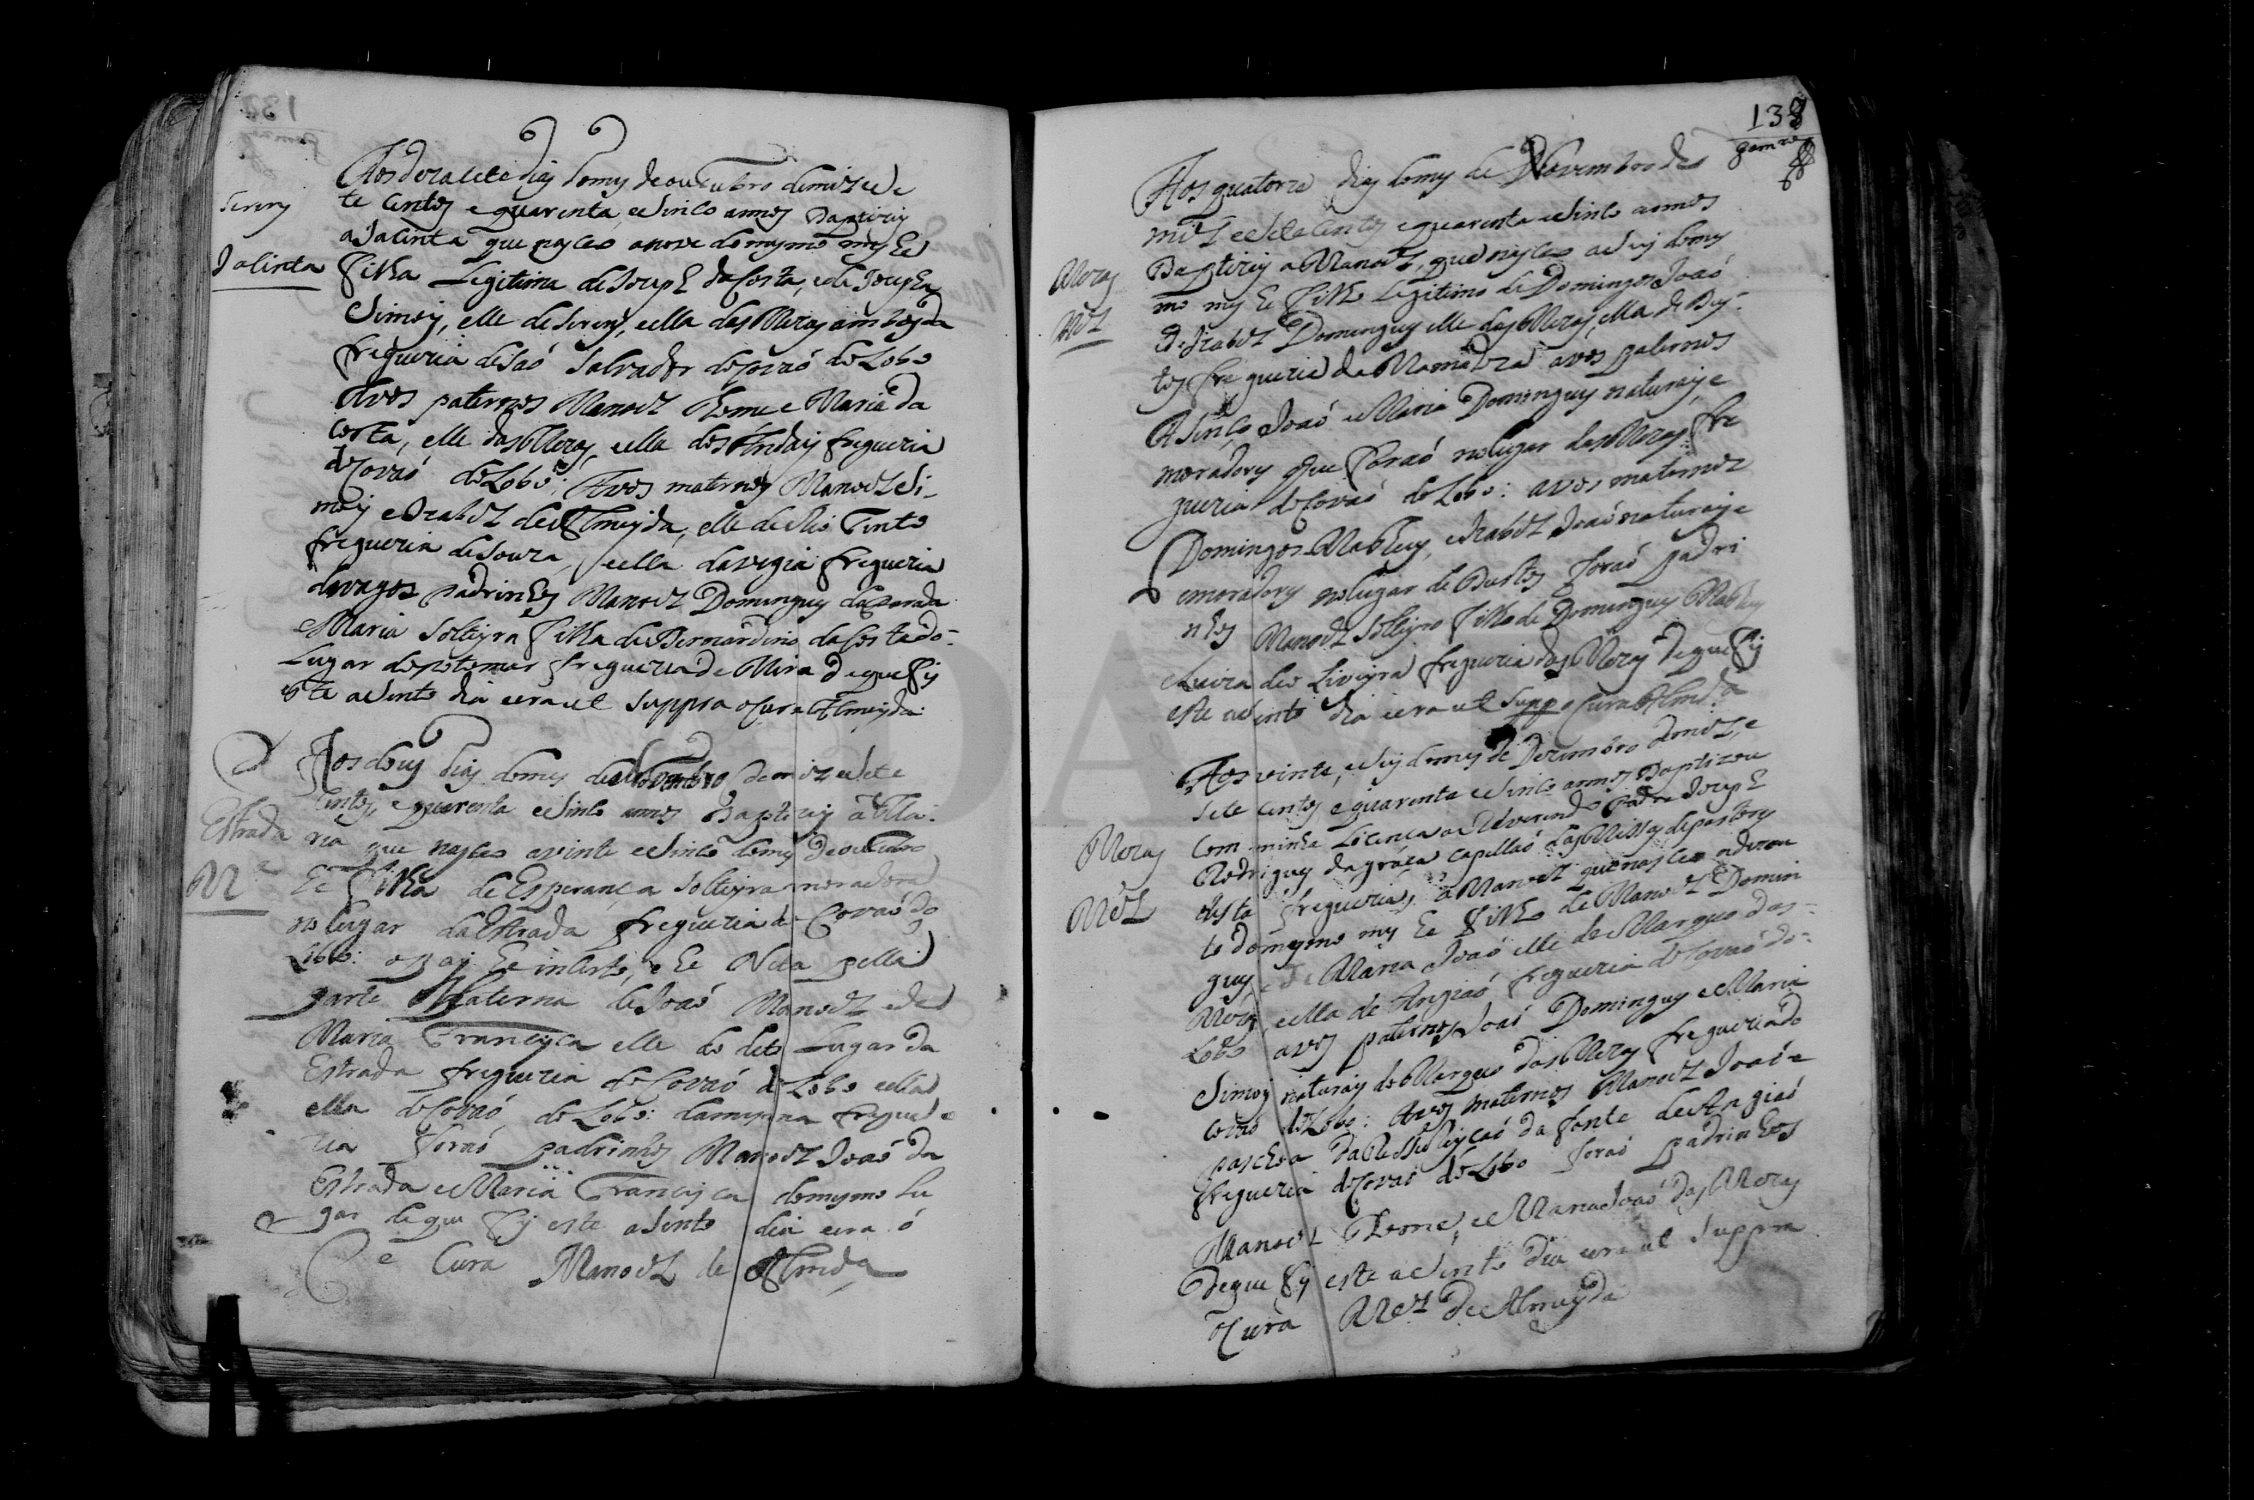 Aos dezasete dias do mes de outubro de mil e se
te centos e quarenta e sinco annos Baptizej
a Jacinta que nasceo a nove do mesmo mes he
filha Legitima de Joseph da Costa, e de Josepha
Simois, elle de
freguezia de Saó Salvador de Covaó do Lobo
Avos paternos Manoel Thome e Maria da
Costa, elle das Meras, e ella dos freguezia
de Covaó do Lobo; Avos maternos Manoel Si-
mois e Izabel de Almeyda, elle de Rio Tinto
freguezia de Souza, e ella da vegia freguezia
de vagos padrinhos Manoel Domingues da parada
e Maria Solteyra filha de Bernardino da Costa do
Lugar de portomar freguezia de Mira de que fis
este asento dia era ut suppra o Cura Almeyda
Jacinta
Aos dous dias do mes de Novembro de mil e sete
centos e quarenta e sinco annos Baptizej a Ma-
ria que nasceo a vinte e sinco do mes de outubro
he filha de Esperança Solteyra moradora
no lugar da Estrada freguezia de Covaó do
Lobo: o paj he inserto, e he Neta pella
parte Materna de Joaó Manoel e de
Maria Francisca elle do dito Lugar da
Estrada freguezia de Covaó do Lobo e ella
ella de Covaó do Lobo: da mesma freguе
zia foraó padrinhos Manoel Joaó da
Estrada e Maria Francisca do mesmo Lu
gar de que fis este asento dia era ó
Cura Manoel de Almda
Estrada
Mª
138
Aos quatorze dias do mes de Novembro de
mil e sete centos e quarenta e sinco annos
Baptizej a Manoel, que nasceo a seis do mes
mo mes he filho Legitimo de Domingos Joaó
e de Izabel Domingues elle das Meras, ella de Bus-
tos freguezia da Mamarza avos paternos
Asenso Joaó e Maria Domingues naturais e
moradores que foraó no lugar das Meras fre
guezia de Covaó do Lobo: avos maternos
Domingos Matheus, e Izabel Joaó naturais e
e moradores no lugar de Bustos foraó padri
nhos Manoel Solteyro filho de Domingues Matheus
freguezia das Meras de que fis
este asento dia era ut supp o Cura Almda
Meras
Mel
Aos vinte e seis do mes de Dezembro de mil, e
sete centos e quarenta e sinco annos Baptizou
com minha Licença o Reverendo Padre Joseph
Rodrigues da graça capellaó das Missas de pastores
desta freguezia, a Manoel que nasceo a dezou
to do mesmo mes he filho de Manoel Domin
gues e de Maria Joaó elle de Marques das
Meras, e ella de Angiaó freguezia de Covaó do
Lobo avos paternos Joaó Domingues e Maria
Simois naturais de Marques das Meras freguezia de
Covaó do Lobo: Avos maternos Manoel Joaó e
paschoa da Ressureiçaó da fonte de Angiaó
freguezia de Covaó do Lobo foraó padrinhos
Manoel Thome, e Maria Joaó das Meras
de que fis este asento dia era ut suppra
o Cura Mel de Almeyda
Meras
Mel